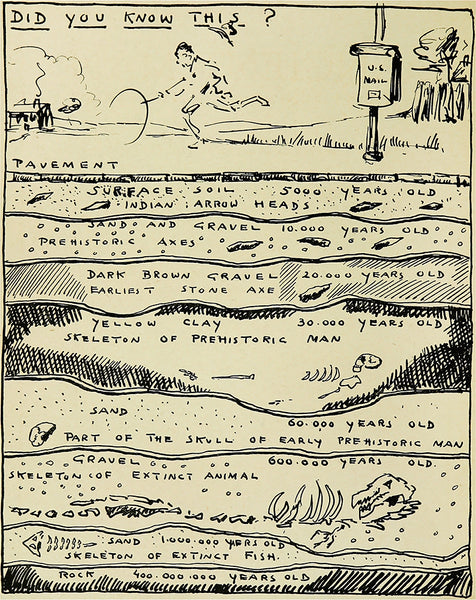 DID YOU KNOW THIS ?
U.S.
MAIL
PAVEMENT
SURFACE SOIL 5000 YEARS OLD
INDIAN ARROW HEADS
SAND AND GRAVEL 10.000 YEARS OLD
PREHISTORIC AXES
DARK BROWN GRAVEL 20.000 YEARS OLD
EARLIEST STONE AXE
YELLOW CLAY 30.000 YEARS OLD
SKELETON OF PREHISTORIC MAN
SAND
60.000 YEARS OLD
PART OF THE SKULL OF EARLY PREHISTORIC MAN
GRAVEL 600.000 YEARS OLD.
SKELETON OF EXTINCT ANIMAL
SAND 1.000.000 YERS OLD
SKELETON OF EXTINCT FISH.
ROCK 400.000.000 YEARS OLD